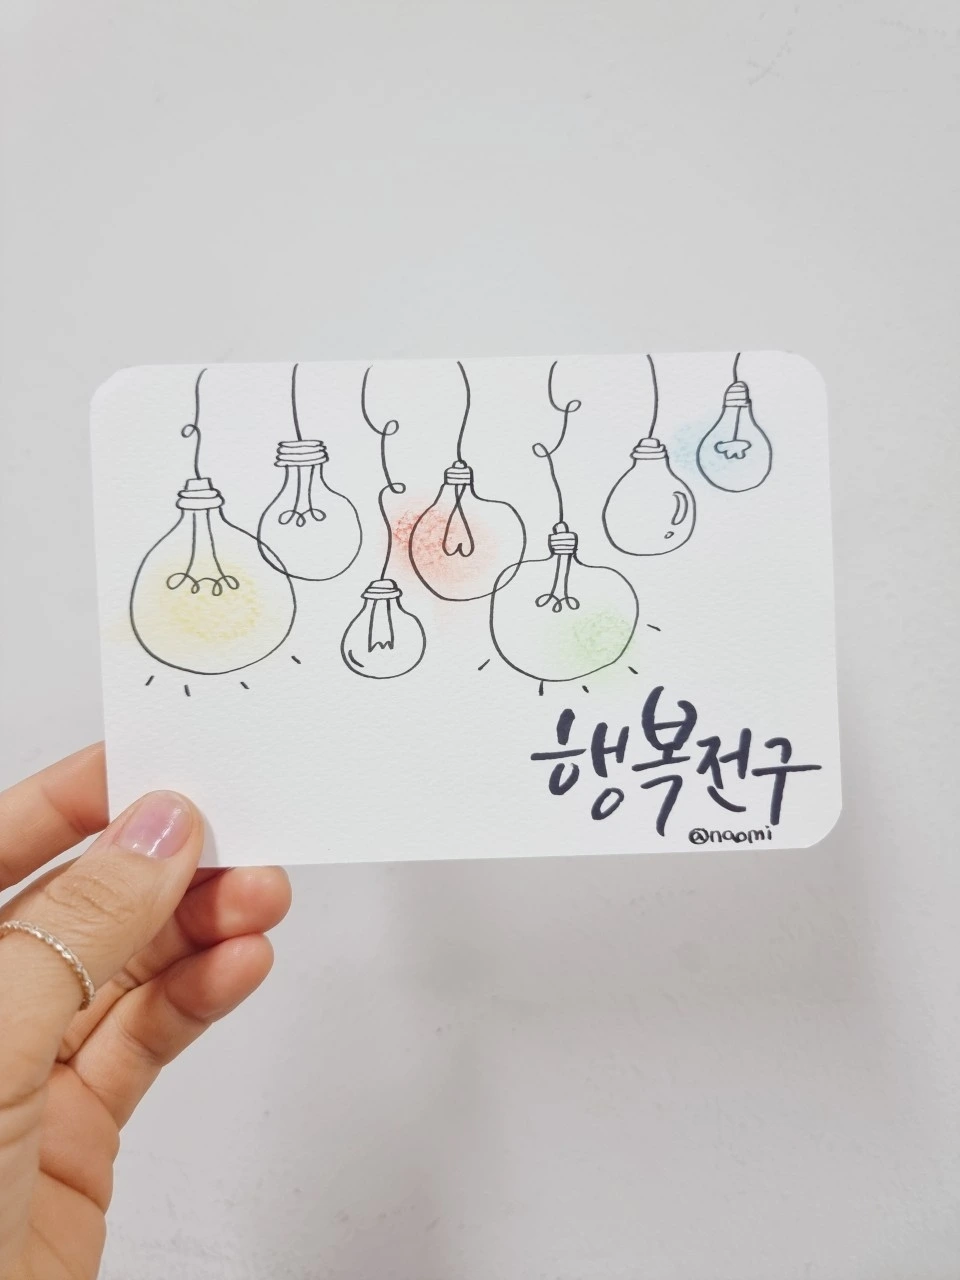 행복전구
@naomi